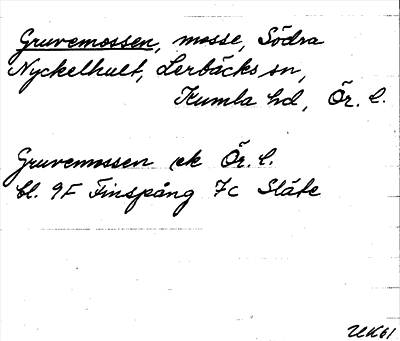 Gruvemossen, mosse, Södra
Nyckelhult, Lerbäcks sn,
Kumla hd, Ör. l.
Gruvemossen ek Ör. l.
bl. 9F Finspång 7c Släte
UK61